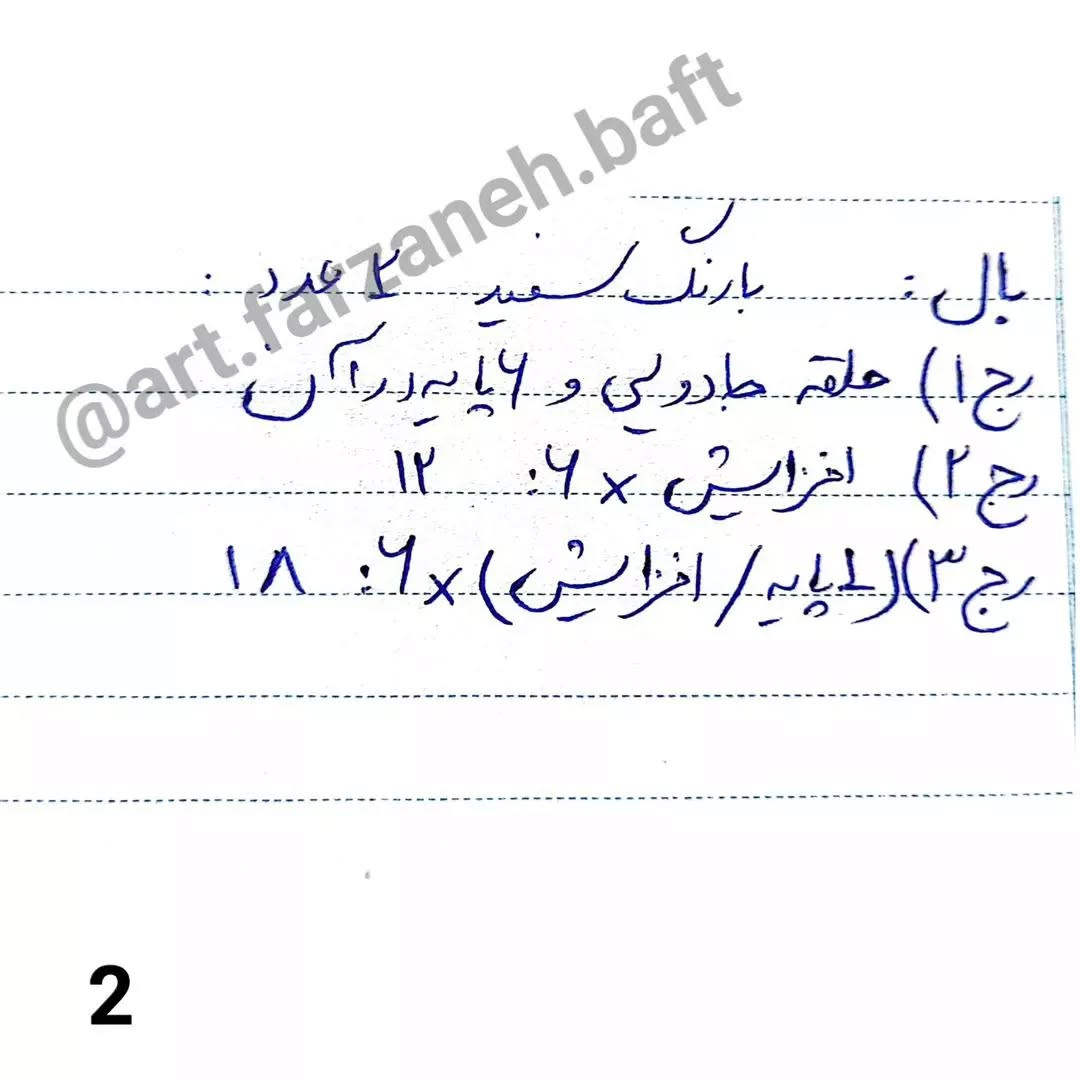 @art.farzaneh.baft
بال: با رنگ سفید ۲ عدد:
رج ۱) حلقه جادویی و ۶ پایه در آن
رج ۲) افزایش × ۶: ۱۲
رج ۳) (۱ پایه / افزایش) × ۶: ۱۸
2